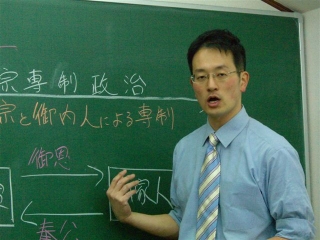 宗専制政治
宗と御内人による専制
御恩
家人
奉公